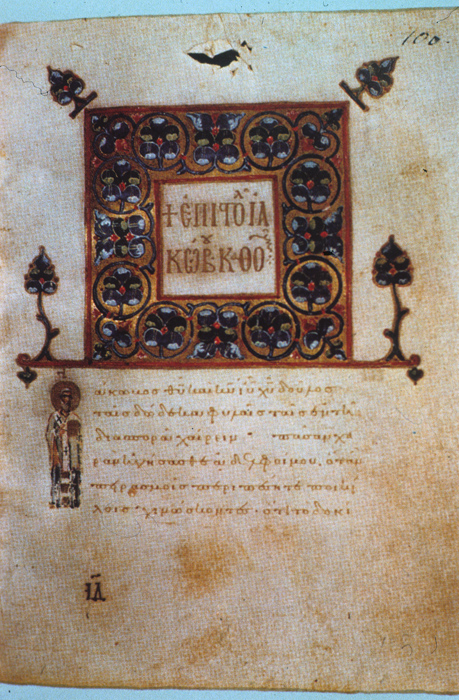 100.
+ ἘΠΙϹΤΟ^Λ ἸΑ
ΚΏΒ^ΟΥ ΚΑΘΟ^Λ
άκωβος θῦ καὶ κῦ ἰῦ χῦ δοῦλος
ταῖς δώδεκα φυλαῖς ταῖς ἐν τῆ
διασπορᾶ χαίρειν· πᾶσαν χα
ρὰν ἡγήσασθε ἀδελφοί μου, ὅταν
πειρασμοῖς περιπέσητε ποικί
λοις· γινώσκοντες ὅτι τὸ δοκί
ΙΑ